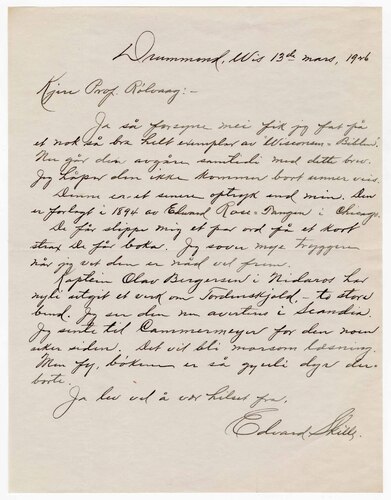 Drummond, Wis 13de mars, 1926
Kjere Prof. Rölvaag:-
Ja så forsyne mei fik jeg fat på
et nok så bra helt exemplar av Wisconsin-Bibelen.
Nu går den avgåre samtidi med dette brev.
Jeg håper den ikke kommer bort underveis.
Denne er et senere optryk end min. Den
er forlagt i 1894 av Edward Rose - i Chicago.
De får slippe mig et par ord på et kort
strax De får boka. Jeg sover mye tryggere
når jeg vet den er nåd vel frem.
Kaptein Olav Bergersen i Nidaros har
nyli utgit et verk om Tordenskjold, - to store
bind. Jeg ser den nu avertius i Scandia.
Jeg sinte til Cammermeyer for den noen
uker siden. Det vil bli morsom læsning.
Men fy, bökene er så gyseli dyre der-
borte.
Ja lev vel å vær helset fra,
Edward Skille.